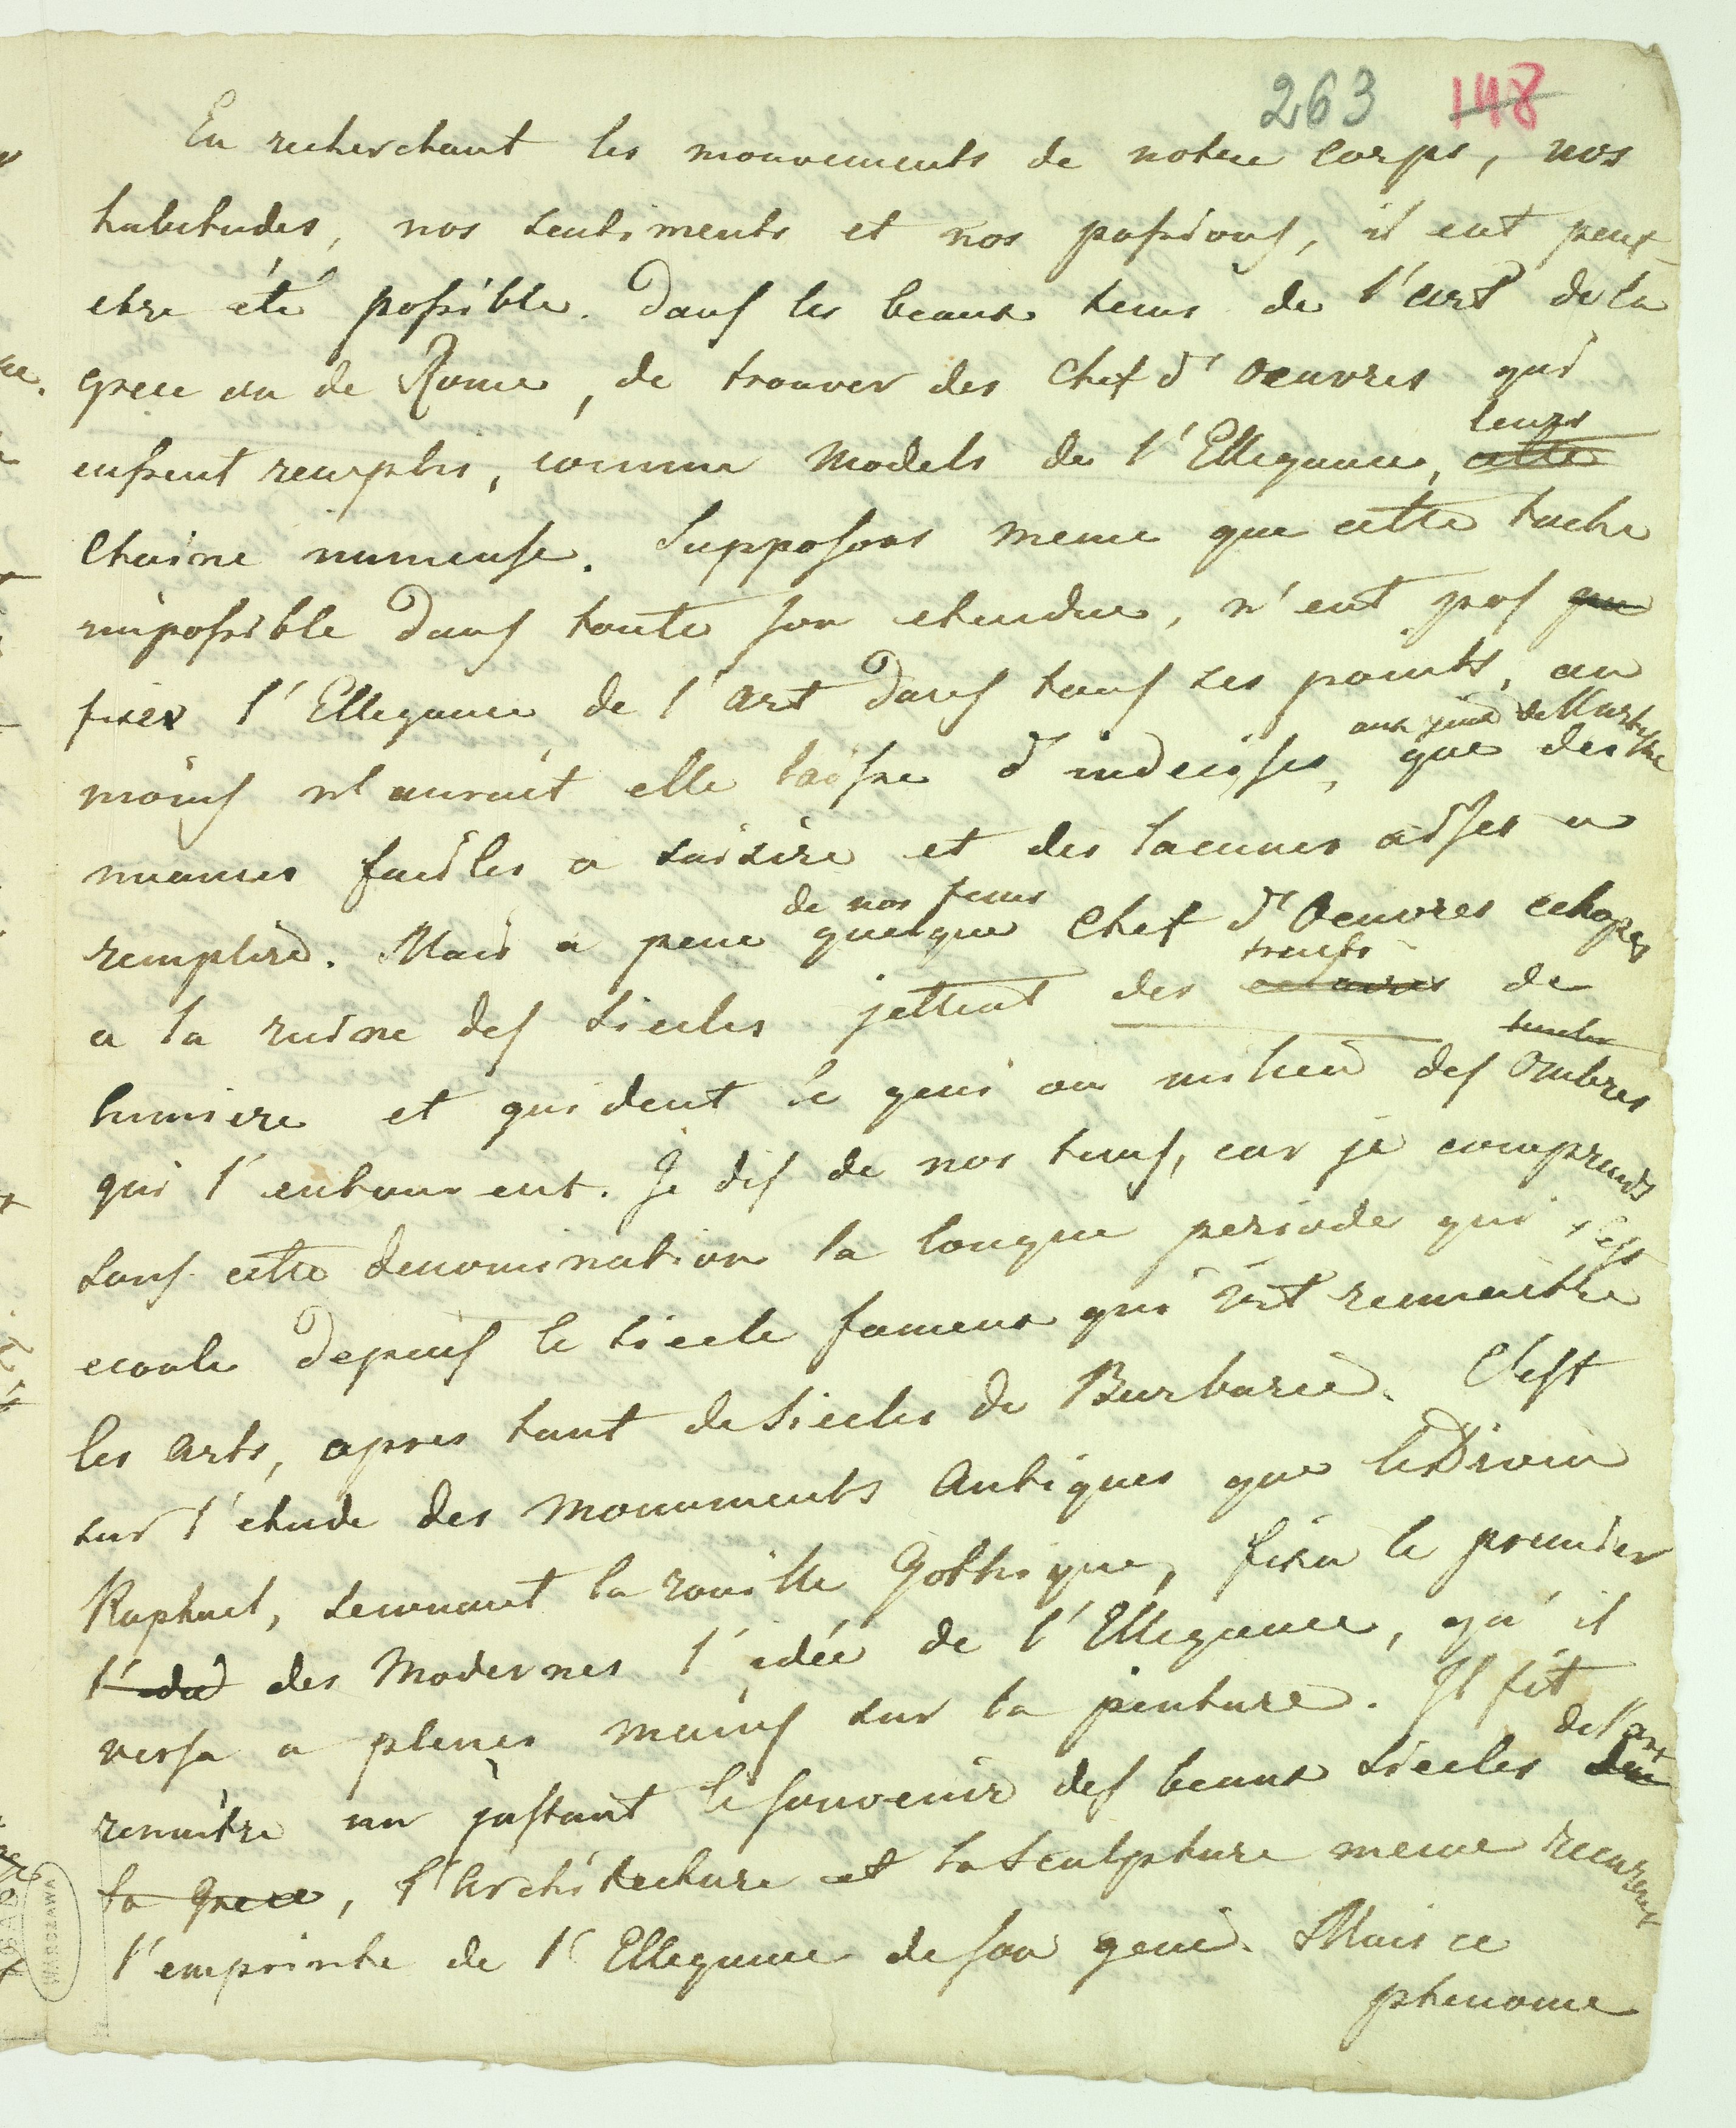 263 148
En recherchant les mouvements de notre corps, nos
habitudes, nos sentiments et nos passions, il eut peut-
etre été possible. Dans les beaux tems de l'art de la
Grece ou de Rome, de trouver des Chef d'oeuvres qui
leurs
eussent remplis, comme Models de l'Ellegance, cette
Chaine immense. Supposons meme que cette tache
impossible dans toute son etendue, n'eut pas pu
fixer l'Ellegance de l'Art dans tous ses points, au
aux yeux de l'Artiste
moins n'auroit elle laissé d'indecises, que des
nuances faciles a saisire et des lacunes aisées a
de nos tems
remplire. Mais a peine quelque Chef d'Oeuvres echapés
traits
a la ruine des siecles jettent des eclaires de
lumiere et guident le genie au milieu des Ombres
qui l'entourent. Je dis de nos tems, car je comprends
sous cette denomination la longue periode qui s'est
ecoulé depuis le siecle fameux qui vit rennaitre
les Arts, apres tant de siecles de Barbarie. C'est
sur l'etude des Monuments Antiques que le Divin
Raphael, secouant la rouille Gothique, fixa le premier
des Modernes l'idée de l'Ellegance, qu'il
versa a pleines mains sur la peinture. Il fit
de l'art
renaitre un instant le souvenir des beaux siecles de
la Grece, l'Architecture et la Sculpture meme recurent
l'emprinte de l'Ellegance de son genie. Mais ce
phenome
WARSZAWA